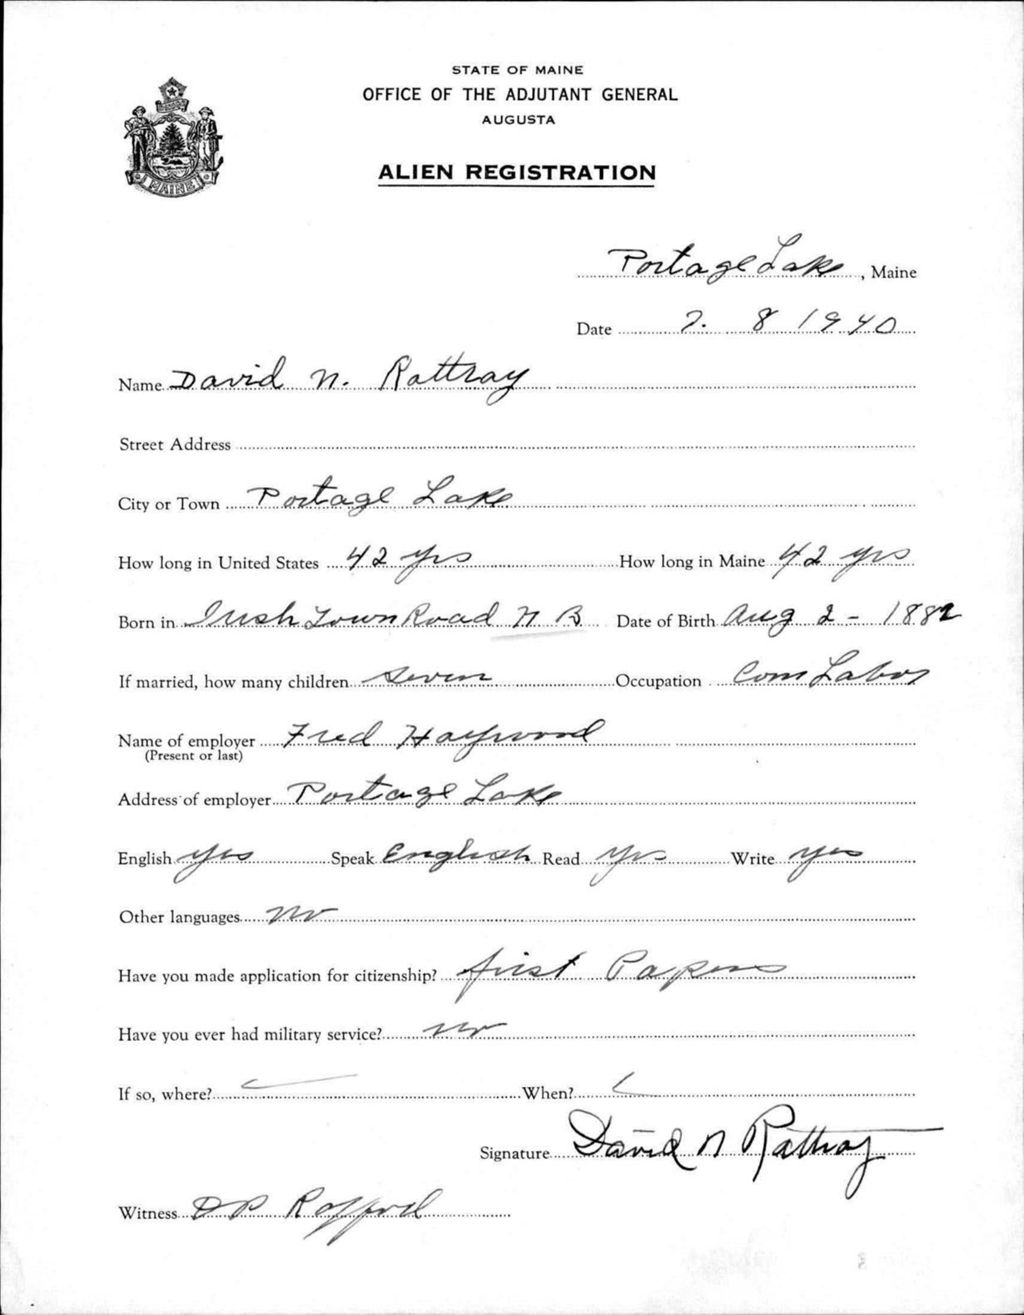 STATE OF MAINE
OFFICE OF THE ADJUTANT GENERAL
AUGUSTA
ALIEN REGISTRATION
MAINE
Portage Lake, Maine
Date 7. 8 1940
Name David N. Rattray
Street Address
City or Town Portage Lake
How long in United States 42 yrs How long in Maine 42 yrs
Born in Irish Town Road N B Date of Birth Aug 2 - 1882
If married, how many children seven Occupation Com Labor
Name of employer Fred Haywood
(Present or last)
Address of employer Portage Lake
English yes Speak English Read yes Write yes
Other languages no
Have you made application for citizenship? first Papers
Have you ever had military service? no
If so, where? When?
Signature David N Rattray
Witness